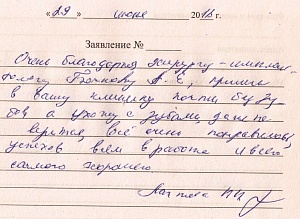 «29» июня 2016 г.
Заявление №
Очень благодарна хирургу-имплан-
тологу А. С, пришла
в вашу клинику почти без зу
бов а ухожу с зубами даже не
верится, всё очень понравилось,
успехов всем в работе и всего
самого хорошего.